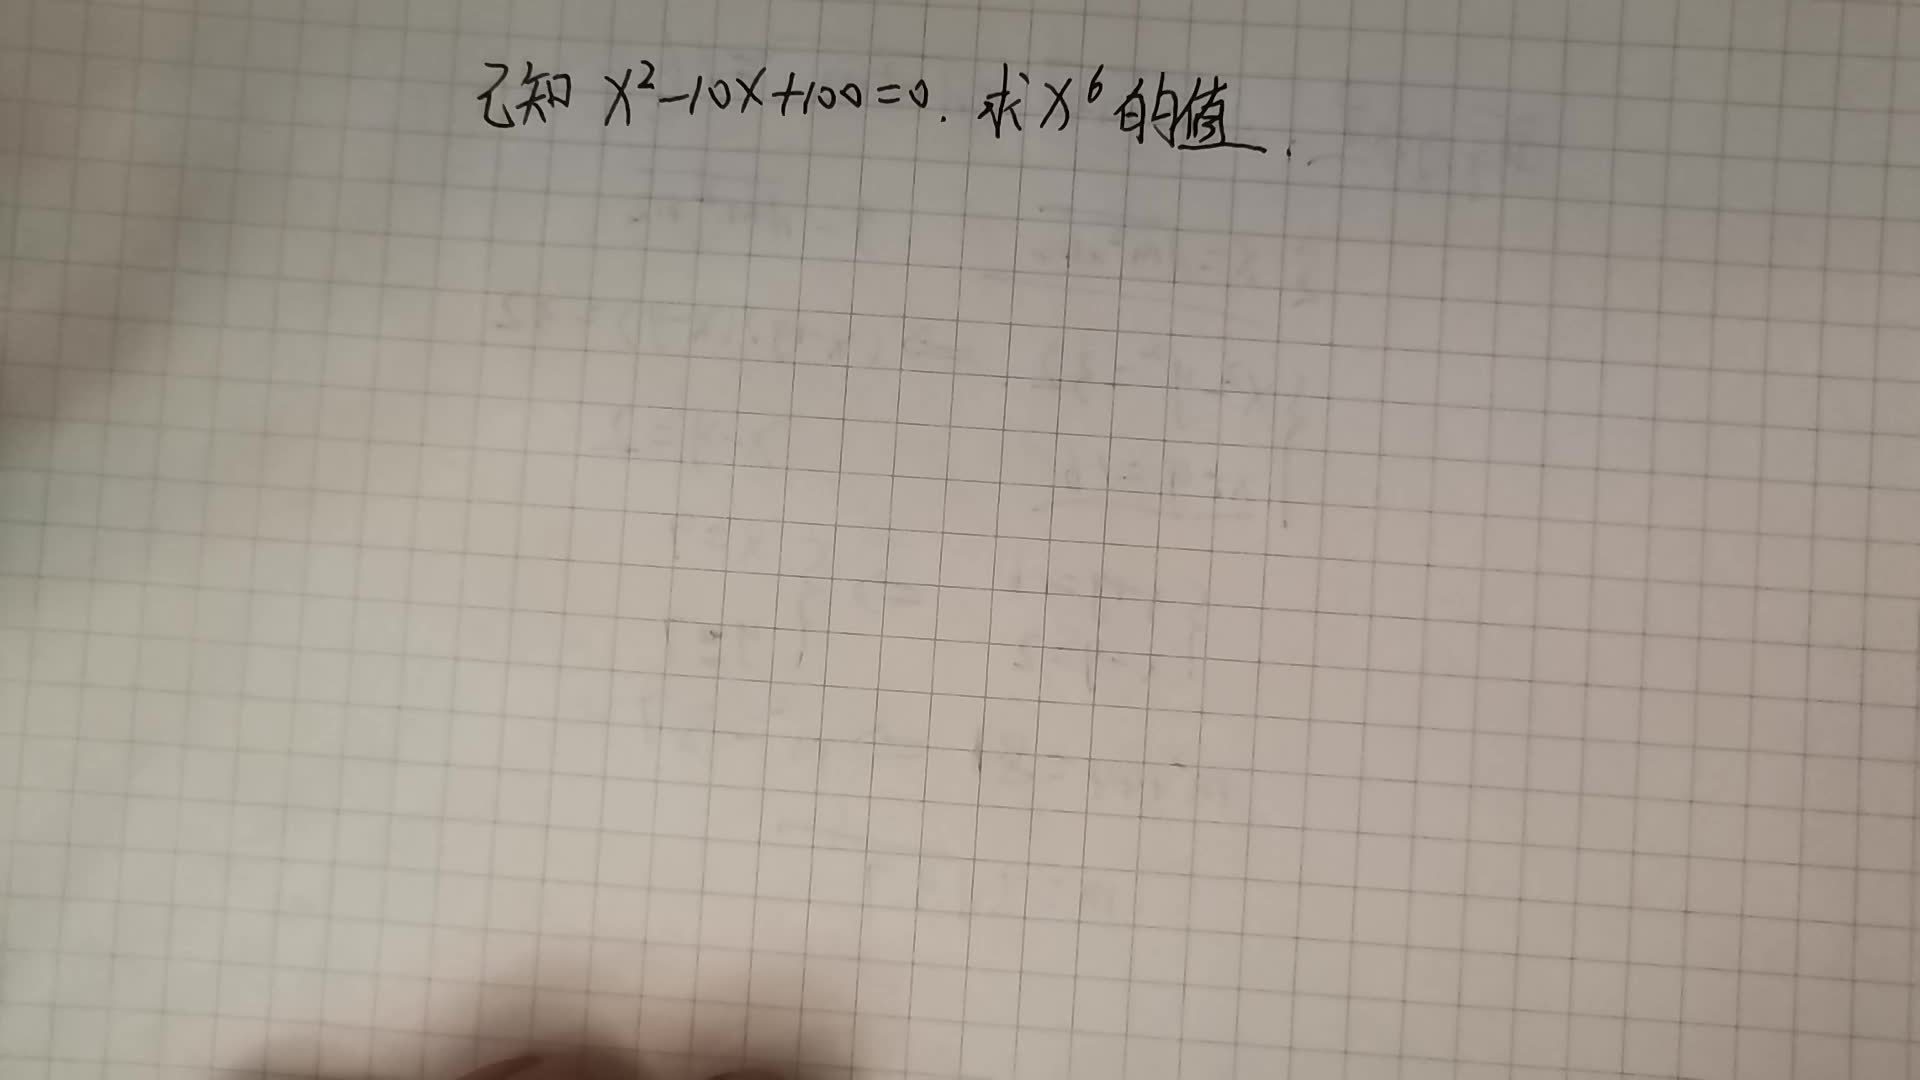 已知 x²-10x+100=0. 求x⁶的值.